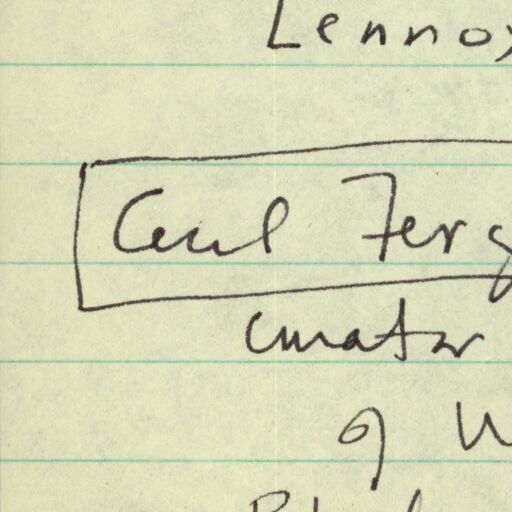 Lennox
Cecil Ferg
curator
of W